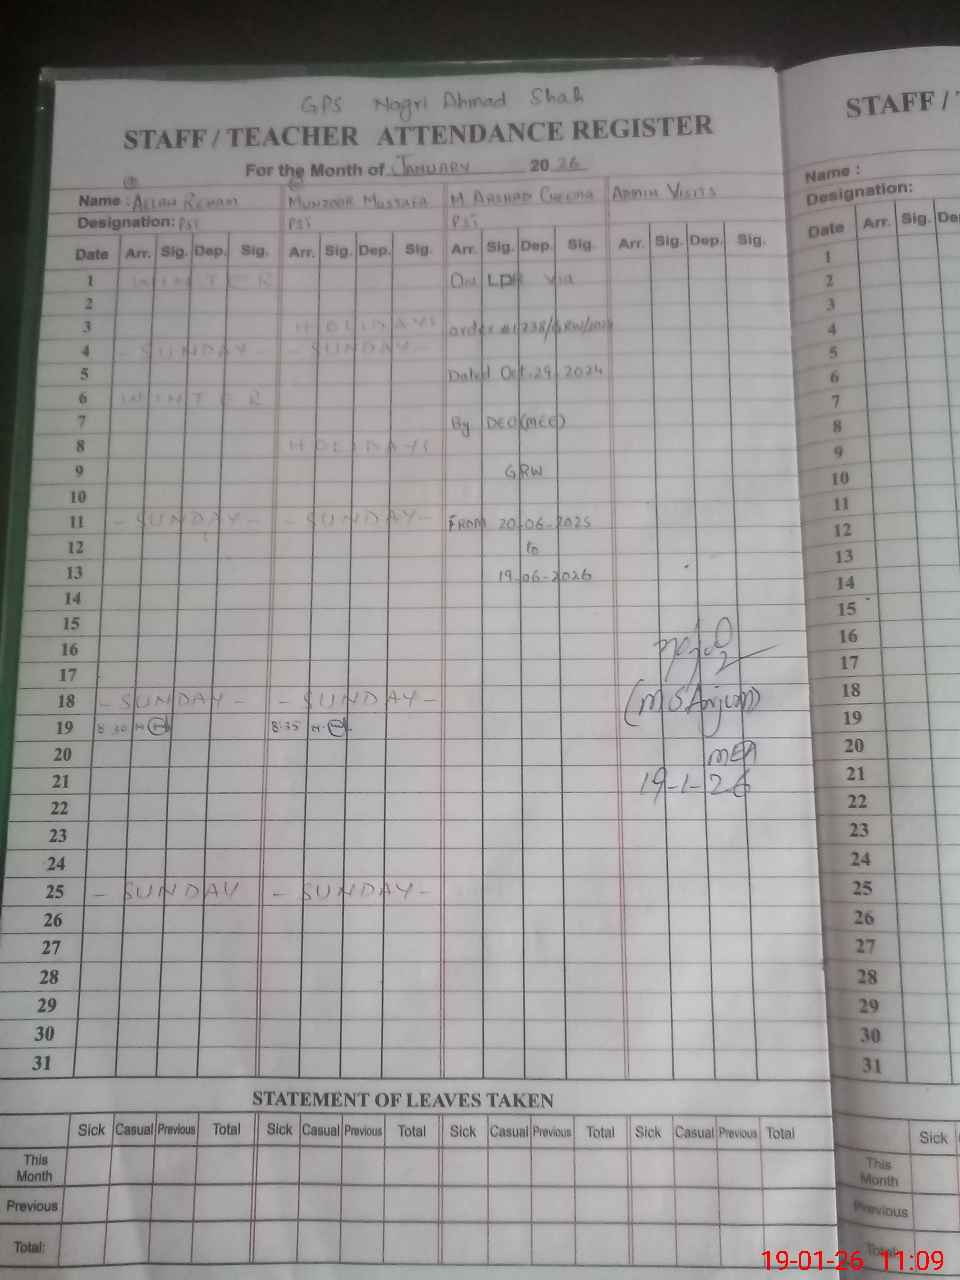 GPS Nogri Ahmad Shah
STAFF / TEACHER ATTENDANCE REGISTER
For the Month of January 2026
Name : Allah Reham Munzoor Mustafa M Arshad Cheema Admin Visits
Designation: PST PST PST
Date Arr. Sig. Dep. Sig. Arr. Sig. Dep. Sig. Arr. Sig. Dep. Sig. Arr. Sig. Dep. Sig.
1 WINTER On LPR via
2
3 HOLIDAYS order #1238/GRW/2024
4 - SUNDAY - - SUNDAY -
5 Dated Oct.29.2024
6 WINTER
7 By DEO(MEE)
8 HOLIDAYS
9 GRW
10
11 - SUNDAY - - SUNDAY - FROM 20-06-2025
12 to
13 19-06-2026
14
15
16
17
18 - SUNDAY - - SUNDAY - (M S Anjum)
19 8:30 8:35
20 MEA
21 19-1-26
22
23
24
25 - SUNDAY - SUNDAY -
26
27
28
29
30
31
STATEMENT OF LEAVES TAKEN
Sick Casual Previous Total Sick Casual Previous Total Sick Casual Previous Total Sick Casual Previous Total
This Month
Previous
Total:
STAFF /
Name :
Designation:
Date Arr. Sig.
1
2
3
4
5
6
7
8
9
10
11
12
13
14
15
16
17
18
19
20
21
22
23
24
25
26
27
28
29
30
31
Sick
This Month
Previous
Total:
19-01-26 11:09